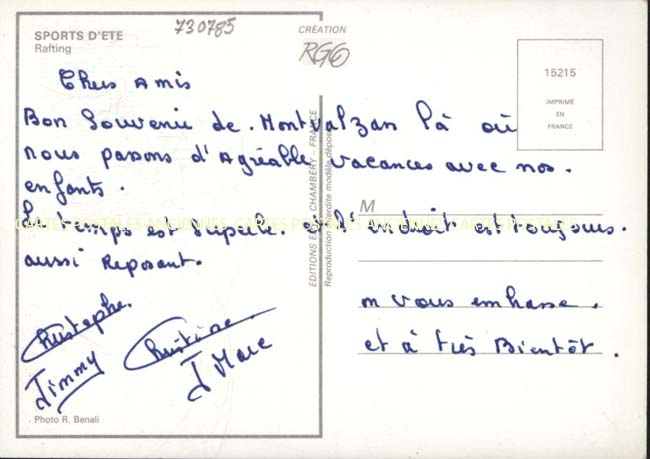 SPORTS D'ETE
Rafting
730785
CRÉATION
RGO
15215
IMPRIMÉ
EN
FRANCE
Chers Amis
Bon Souvenir de. Montvalzan là où
nous passons d'Agréable vacances avec nos.
enfants.
Le temps est superbe. et l'endroit est toujours.
aussi Reposant.
M
on vous embrasse.
et à très Bientôt.
Christophe.
Christine.
Jimmy
J Marc
Photo R. Benali
CHAMBÉRY - FRANCE
Reproduction interdite modèle déposé
CARTES POSTALES ANCIENNES CARTES POSTALES ANCIENNES CARTES POSTALES